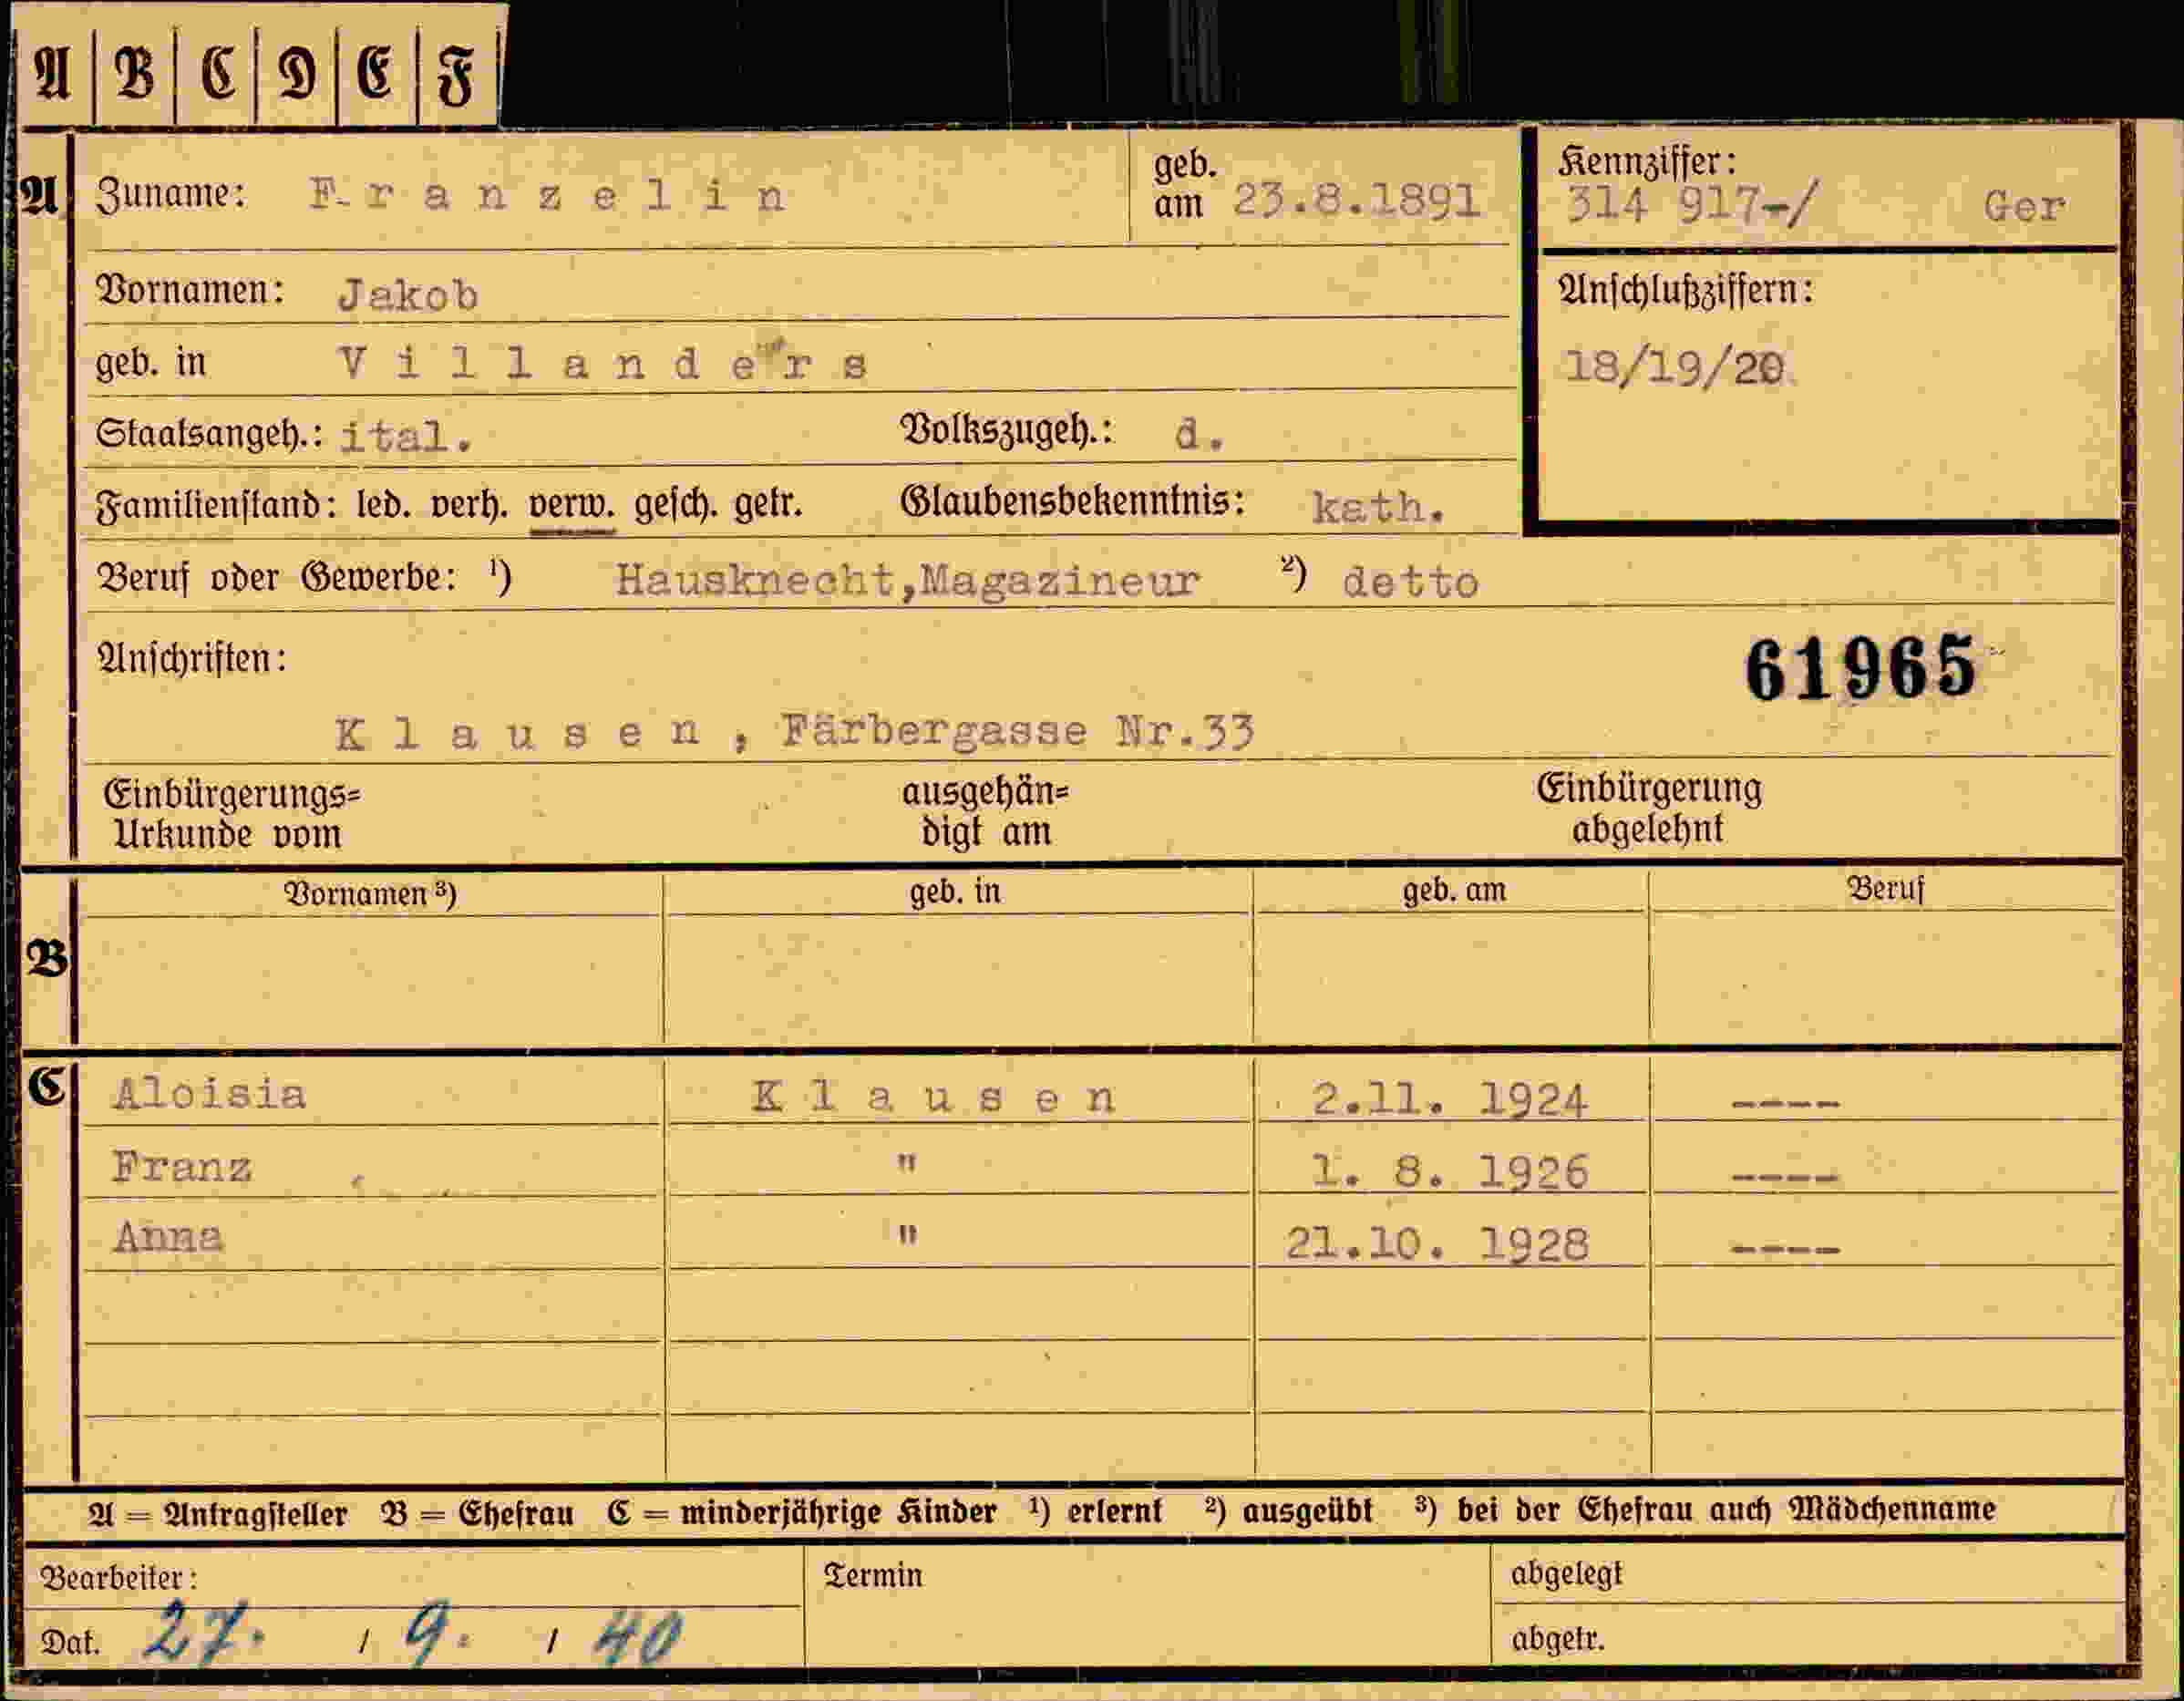 A B C D E F
A Zuname: Franzelin geb. am 23.8.1891 Kennziffer: 314 917-/ Ger
Vornamen: Jakob Anschlußziffern:
geb. in Villanders 18/19/20
Staatsangeh.: ital. Volkszugeh.: d.
Familienstand: led. verh. verw. gesch. getr. Glaubensbekenntnis: kath.
Beruf oder Gewerbe: ¹) Hausknecht,Magazineur ²) detto
Anschriften: 61965
Klausen, Färbergasse Nr.33
Einbürgerungs= ausgehän= Einbürgerung
Urkunde vom digt am abgelehnt
Vornamen ³) geb. in geb. am Beruf
B
C Aloisia Klausen 2.11. 1924 ----
Franz " 1. 8. 1926 ----
Anna " 21.10. 1928 ----
A = Antragsteller B = Ehefrau C = minderjährige Kinder ¹) erlernt ²) ausgeübt ³) bei der Ehefrau auch Mädchenname
Bearbeiter: Termin abgelegt
Dat. 27. / 9. / 40 abgetr.